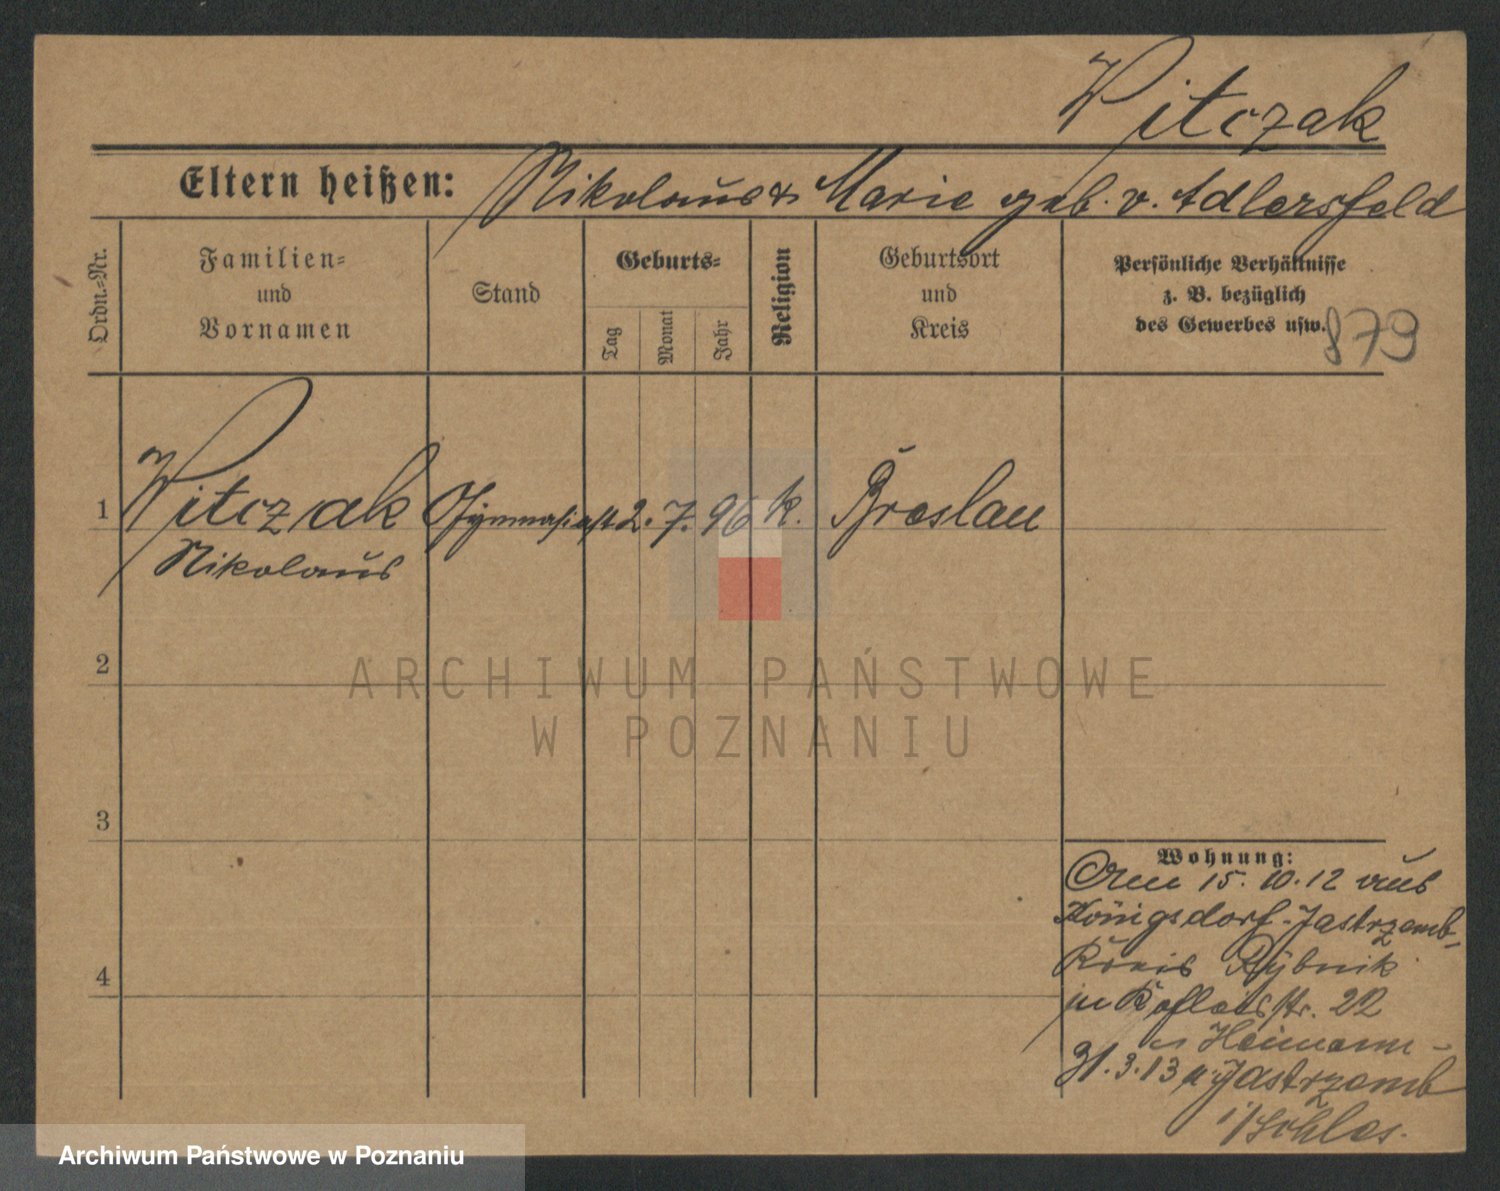 Witczak
Eltern heißen: Nikolaus & Marie geb. v. Adlersfeld
Ordn.-Nr.
Familien-
und
Vornamen
Stand
Geburts-
Tag
Monat
Jahr
Religion
Geburtsort
und
Kreis
Persönliche Verhältnisse
z. B. bezüglich
des Gewerbes usw.
879
1 Witczak Gymnasiast 2. 7. 96 k. Breslau
Nikolaus
2
ARCHIWUM PAŃSTWOWE
W POZNANIU
3
Wohnung:
Am 15.10.12 aus
Königsdorf-Jastrzemb,
Kreis Rybnik
in str. 22
Heimann
31.3.13 n. Jastrzemb
i/Schles.
4
Archiwum Państwowe w Poznaniu